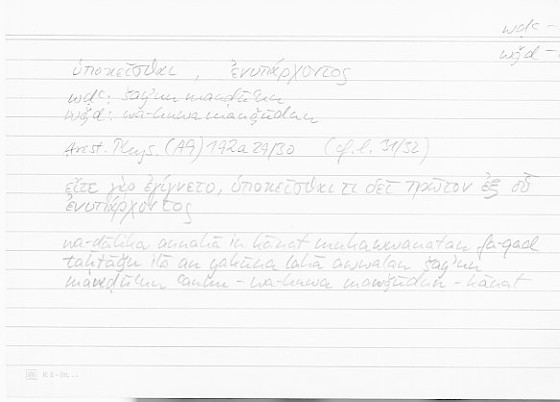 wḍʿ –
wǧd –
ὑποκεῖσθαι , ἐνυπάρχοντος
wḍʿ: šayʾun mauḍūʿun
wǧd: wa-huwa mauǧūdun
Arist. Phys. (A9) 192a 29/30 (cf. l. 31/32)
εἴτε γὰρ ἐγίγνετο, ὑποκεῖσθαί τι δεῖ πρῶτον ἐξ οὗ
ἐνυπάρχοντος
wa-ḏālika annahā in kānat mukawwanatan fa-qad
taḥtāǧu ilā an yakūna lahā awwalan šayʾun
mauḍūʿun ʿanhu – wa-huwa mawǧūdun – kānat